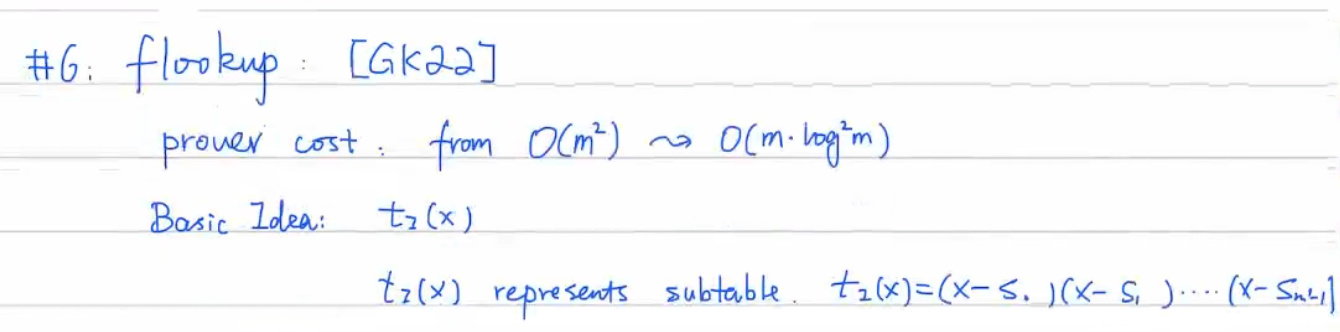 #6: flookup: [GK22]
prover cost: from O(m²) ⇝ O(m·log²m)
Basic Idea: t₂(x)
t₂(x) represents subtable. t₂(x)=(x-s₀)(x-s₁)····(x-sₙ₂₋₁)